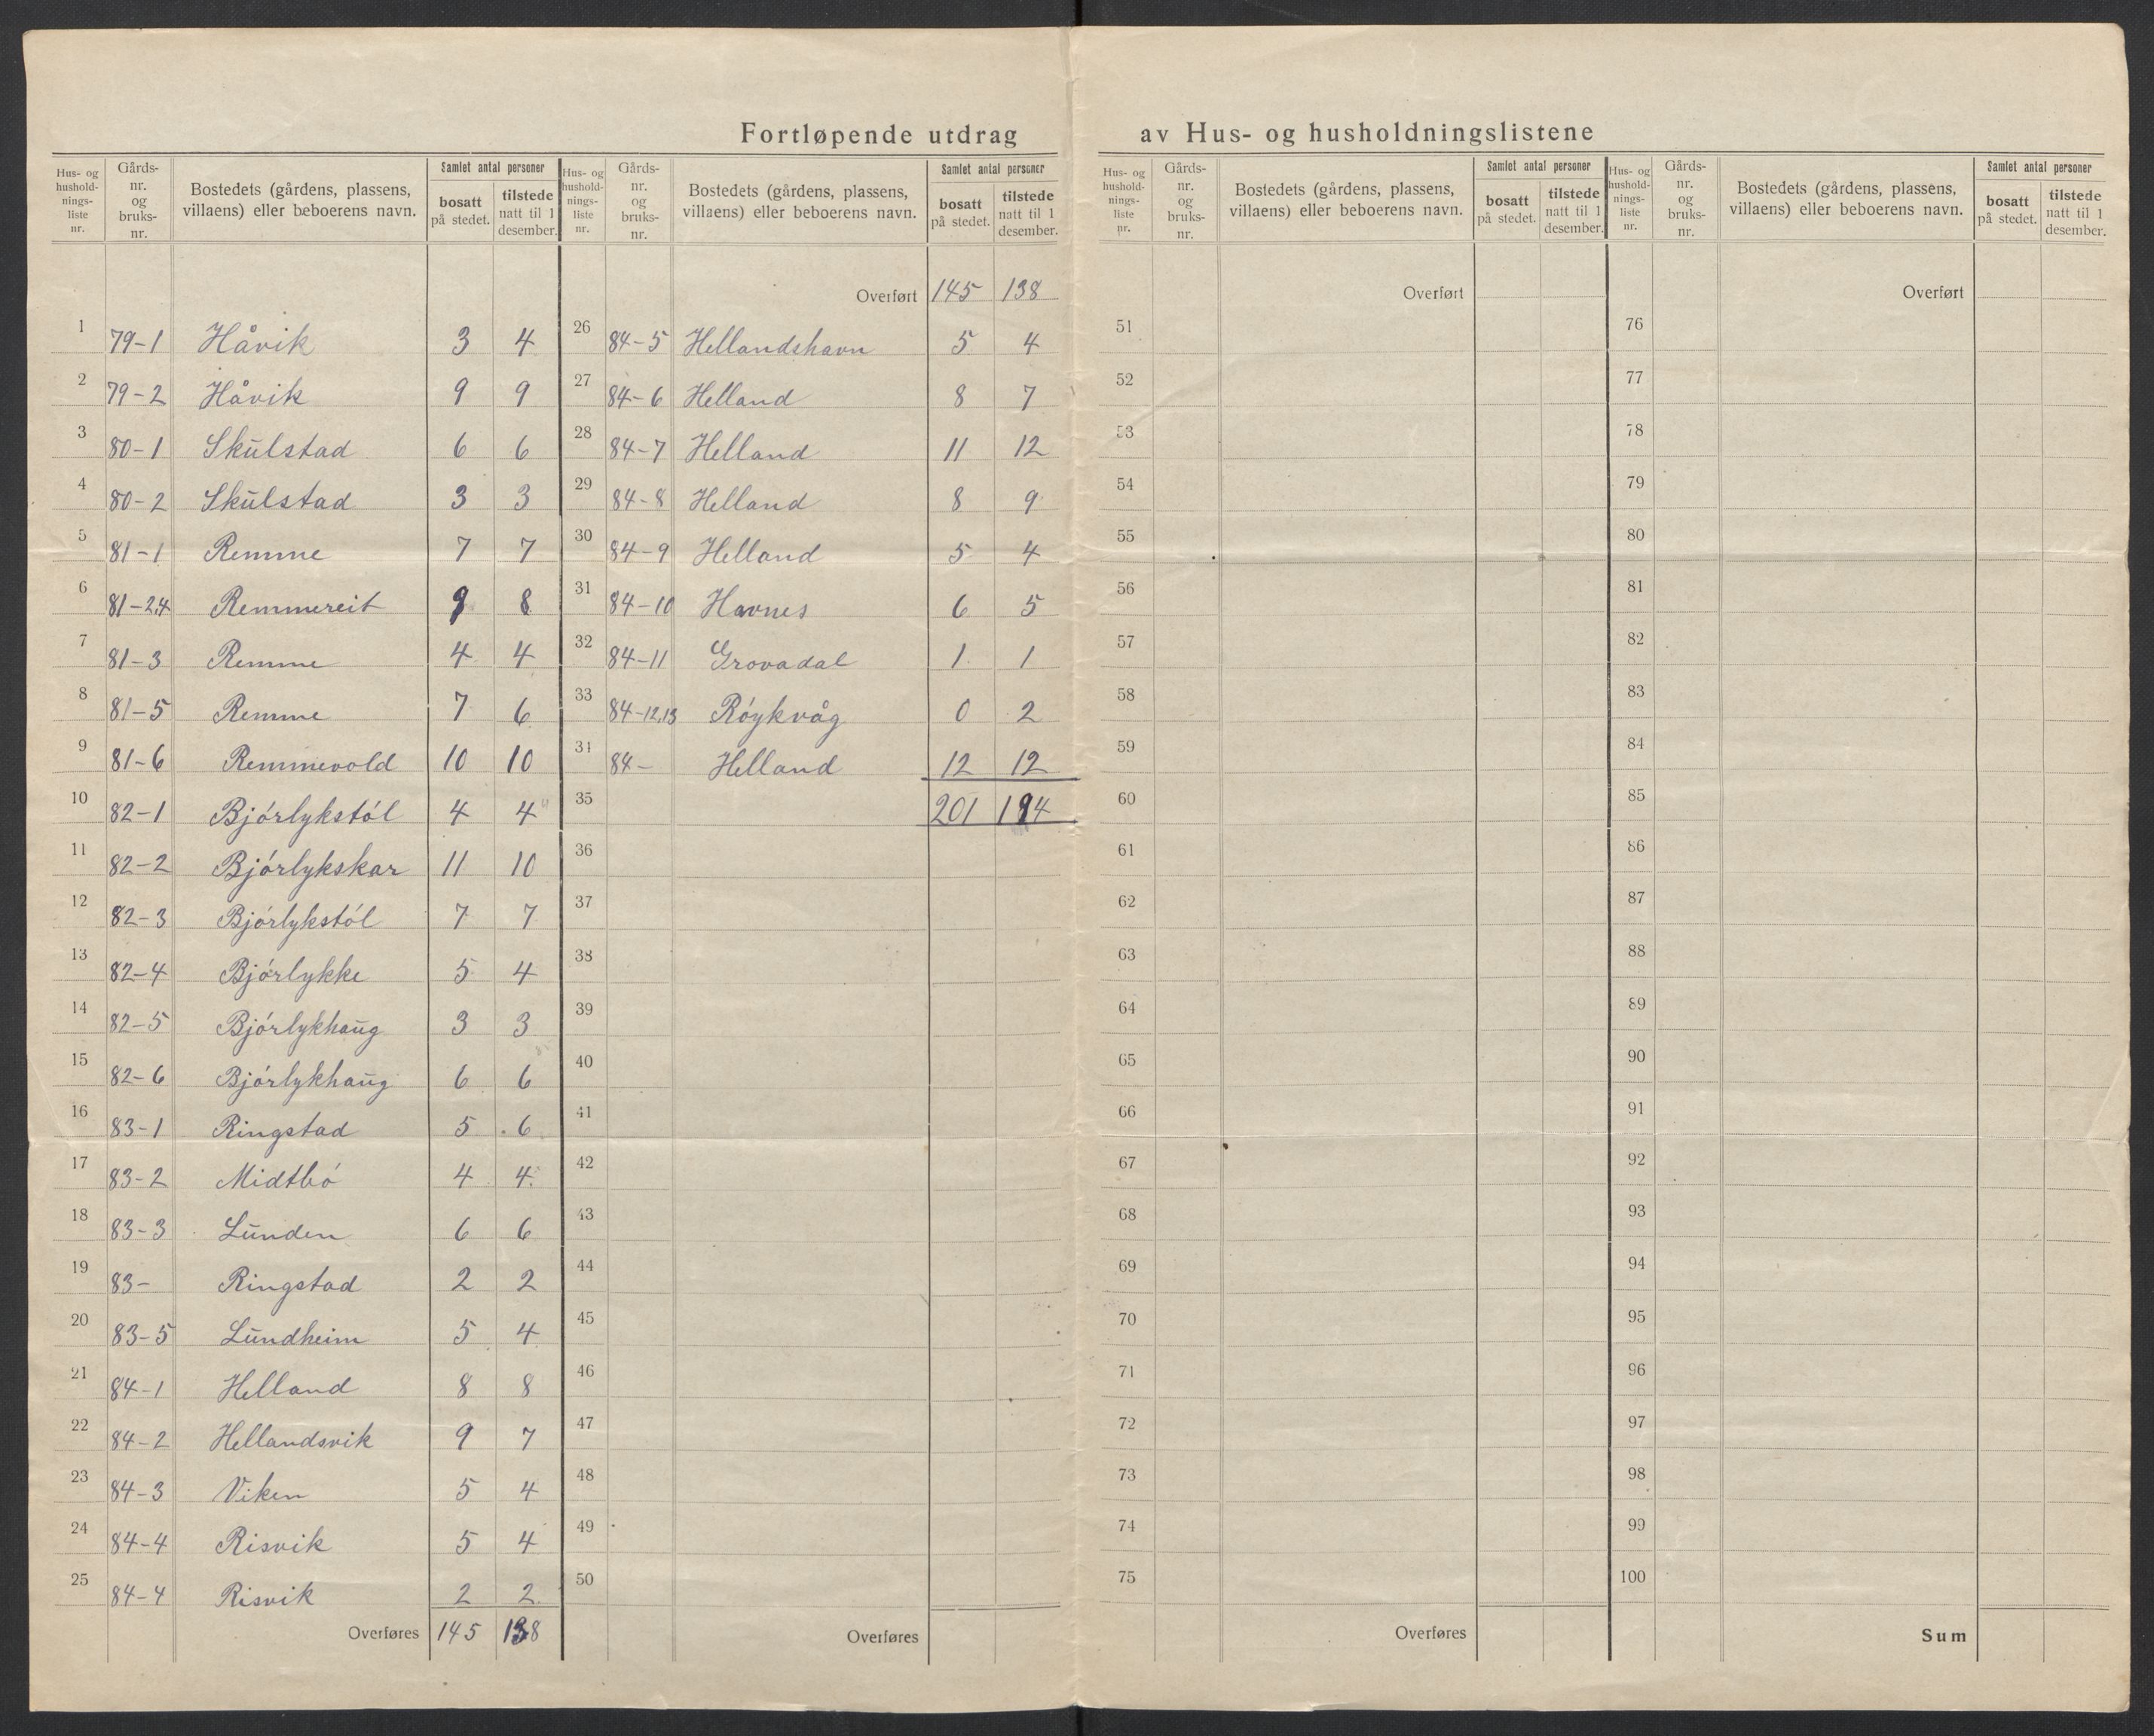 Fortløpende utdrag av Hus- og husholdningslistene
Hus- og hushold-nings-liste nr. | Gårds-nr. og bruks-nr. | Bostedets (gårdens, plassens, villaens) eller beboerens navn. | Samlet antal personer | bosatt på stedet. | tilstede natt til 1 desember.
1 79-1 Håvik 3 4
2 79-2 Håvik 9 9
3 80-1 Skulstad 6 6
4 80-2 Skulstad 3 3
5 81-1 Remme 7 7
6 81-2,4 Remmereit 9 8
7 81-3 Remme 4 4
8 81-5 Remme 7 6
9 81-6 Remmevold 10 10
10 82-1 Bjórlykstól 4 4
11 82-2 Bjórlykskar 11 10
12 82-3 Bjórlykstól 7 7
13 82-4 Bjórlykke 5 4
14 82-5 Bjórlykhaug 3 3
15 82-6 Bjórlykhaug 6 6
16 83-1 Ringstad 5 6
17 83-2 Midtbó 4 4
18 83-3 Lunden 6 6
19 83- Ringstad 2 2
20 83-5 Lundheim 5 4
21 84-1 Helland 8 8
22 84-2 Hellandsvik 9 7
23 84-3 Viken 5 4
24 84-4 Risvik 5 4
25 84-4 Risvik 2 2
Overføres 145 138
Hus- og hushold-nings-liste nr. | Gårds-nr. og bruks-nr. | Bostedets (gårdens, plassens, villaens) eller beboerens navn. | Samlet antal personer | bosatt på stedet. | tilstede natt til 1 desember.
Overført 145 138
26 84-5 Hellandshavn 5 4
27 84-6 Helland 8 7
28 84-7 Helland 11 12
29 84-8 Helland 8 9
30 84-9 Helland 5 4
31 84-10 Havnes 6 5
32 84-11 Grovadal 1 1
33 84-12,13 Róykvåg 0 2
34 84- Helland 12 12
35 201 194
36
37
38
39
40
41
42
43
44
45
46
47
48
49
50
Overføres
Hus- og hushold-nings-liste nr. | Gårds-nr. og bruks-nr. | Bostedets (gårdens, plassens, villaens) eller beboerens navn. | Samlet antal personer | bosatt på stedet. | tilstede natt til 1 desember.
Overført
51
52
53
54
55
56
57
58
59
60
61
62
63
64
65
66
67
68
69
70
71
72
73
74
75
Overføres
Hus- og hushold-nings-liste nr. | Gårds-nr. og bruks-nr. | Bostedets (gårdens, plassens, villaens) eller beboerens navn. | Samlet antal personer | bosatt på stedet. | tilstede natt til 1 desember.
Overført
76
77
78
79
80
81
82
83
84
85
86
87
88
89
90
91
92
93
94
95
96
97
98
99
100
Sum